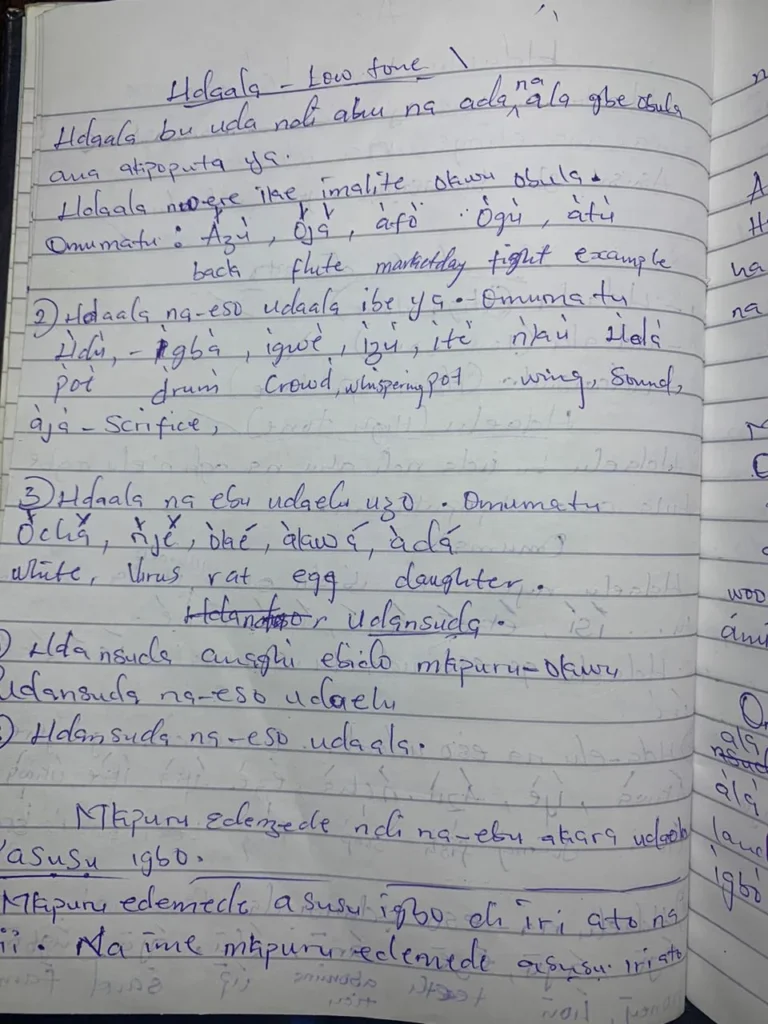 Udaala - Low tone \
Udaala bu uda ndi ahu na ada, na ala gbe obula
ana akpoputa ya.
Udaala nwere ike imalite okwu obula.
Omumatu: Àzụ̀, Ọ̀jà, àfọ̀ Ọ̀gụ̀, àtụ̀
back flute marketday fight example
2) Udaala na-eso udaala ibe ya. Omumatu
Ùdù, - ìgbà, ìgwè, ìzù, ìtè ǹkù Ùdà
pot drum Crowd, whispering pot wing, Sound,
àjà - Scrifice,
3) Udaala na ebu udaelu uzo. Omumatu
Ọ̀chá, ǹjé, òké, àkwá, àdá
white, Virus rat egg daughter.
Udansuda.
Udansuda anaghi ebido mkpuru-okwu
Udansuda na-eso udaelu
) Udansuda na-eso udaala.
Mkpuru edemede ndi na-ebu akara udaolu
asusu igbo.
Mkpuru edemede asusu igbo di iri ato na
ii. Na ime mkpuru edemede asusu iri ato
na
na
woo
ala
àlà
land
ìgbò